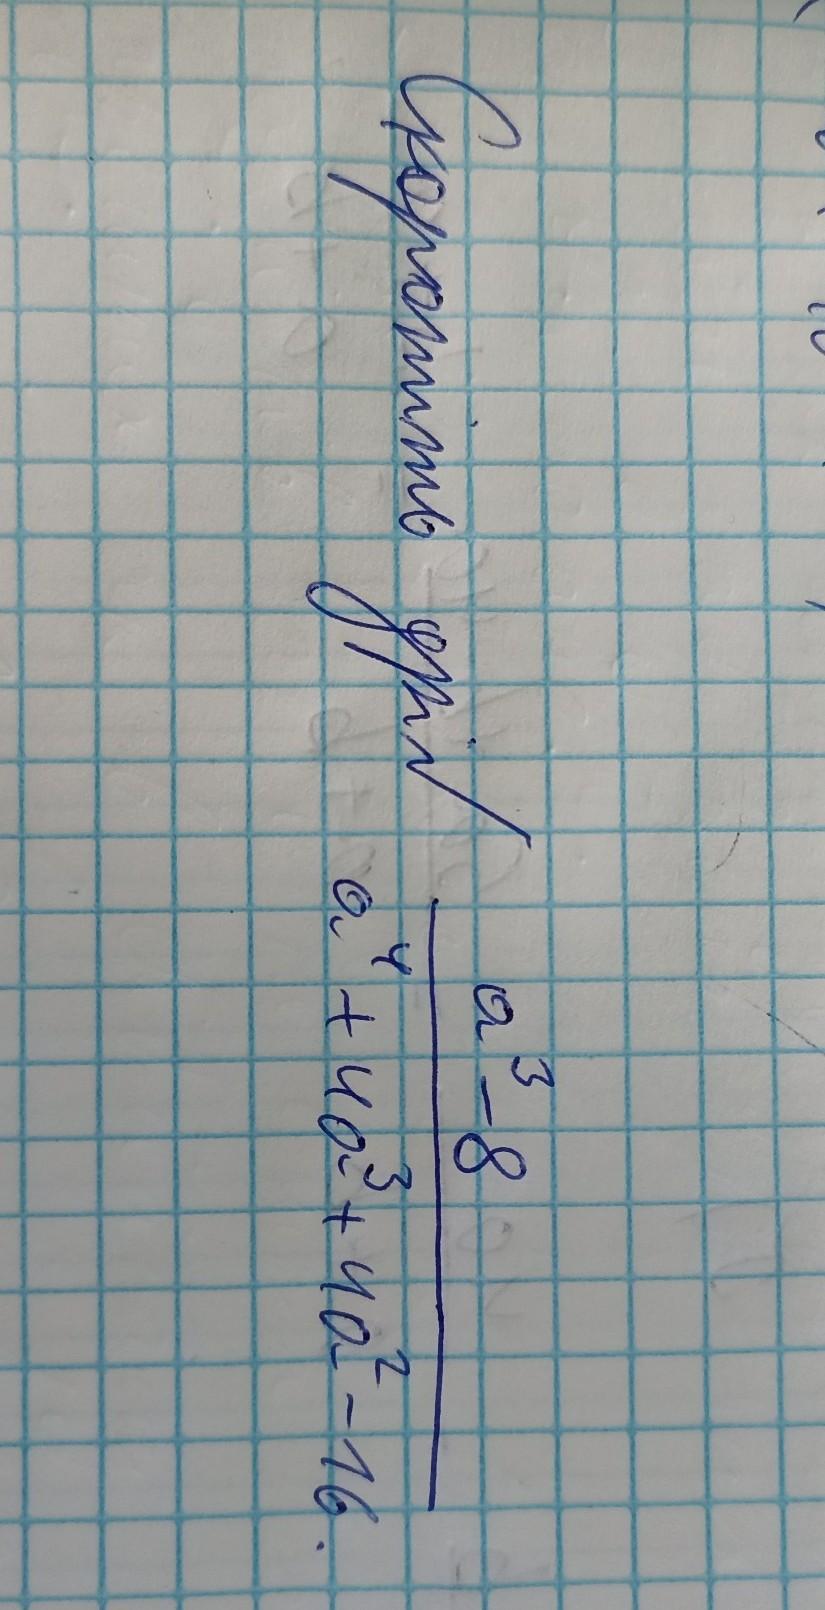 Скоротіть дріб
a³-8
a⁴+4a³+4a²-16.